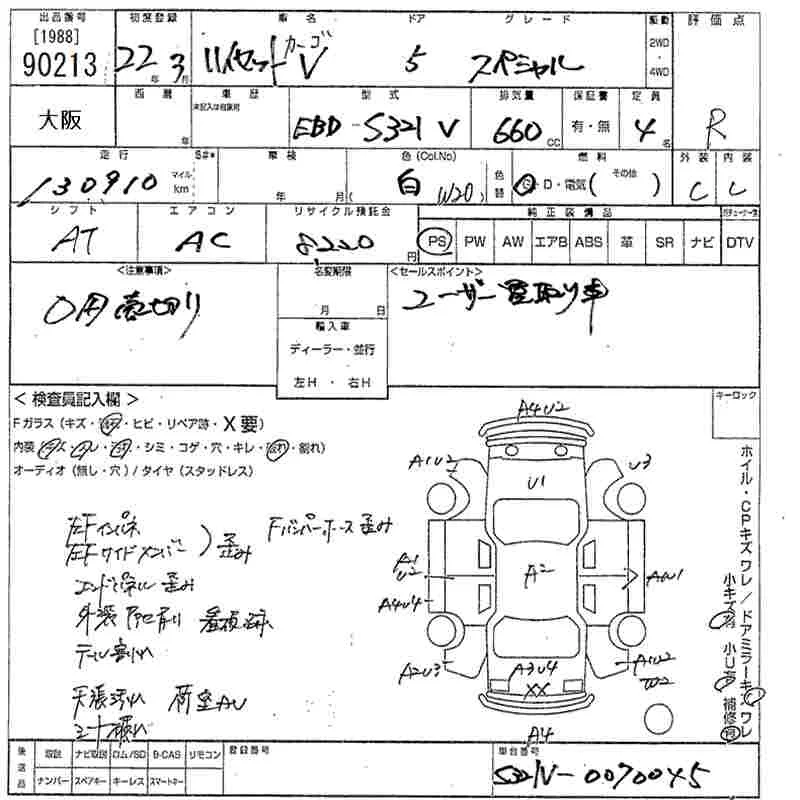 出品番号 初度登録 車名 ドア グレード 駆動 評価点
[1988]
90213 22年 3月 ハイゼットカーゴV 5 スペシャル 2WD・4WD R
大阪 西暦 年 車歴 未記入は自家用 型式 EBD-S321V 排気量 660cc 保証書 有・無 定員 4名
走行 S#* 車検 色(Col.No) 燃料 外装 内装
130910 マイル km 年 月( 白 W20) 色替 G・D・電気( その他 ) C C
シフト エアコン リサイクル預託金 純正装備品
AT AC 8,220円 PS PW AW エアB ABS 革 SR ナビ DTV
<注意事項> 名変期限 <セールスポイント>
〇用売切り 月 日 ユーザー買取り車
輸入車
ディーラー・並行
左H ・ 右H
<検査員記入欄> キーロック
Fガラス(キズ・補修・ヒビ・リペア跡・X要)
内装(キズ・ヨゴレ・汚れ・シミ・コゲ・穴・キレ・破れ・割れ)
オーディオ(無し・穴)/タイヤ(スタッドレス)
左Fインパネ
左Fサイドメンバー )歪み Fバンパーホース歪み
エンドパネル 歪み
外装
テール割れ
天張汚れ 荷室AU
シート破れ
A4U2
A1U2 U3
U1
A1
U2 A2 AU1
A4U4
A2U3 A3U4 A1U2
XX W2
A4
ホイル・CPキズ ワレ/ドアミラーキズ ワレ
小キズ有 小U有 補修有
後送品 取説 ナビ取説 ロム/SD B-CAS リモコン 登録番号 車台番号
ナンバー スペアキー キーレス スマートキー S321V-0070045